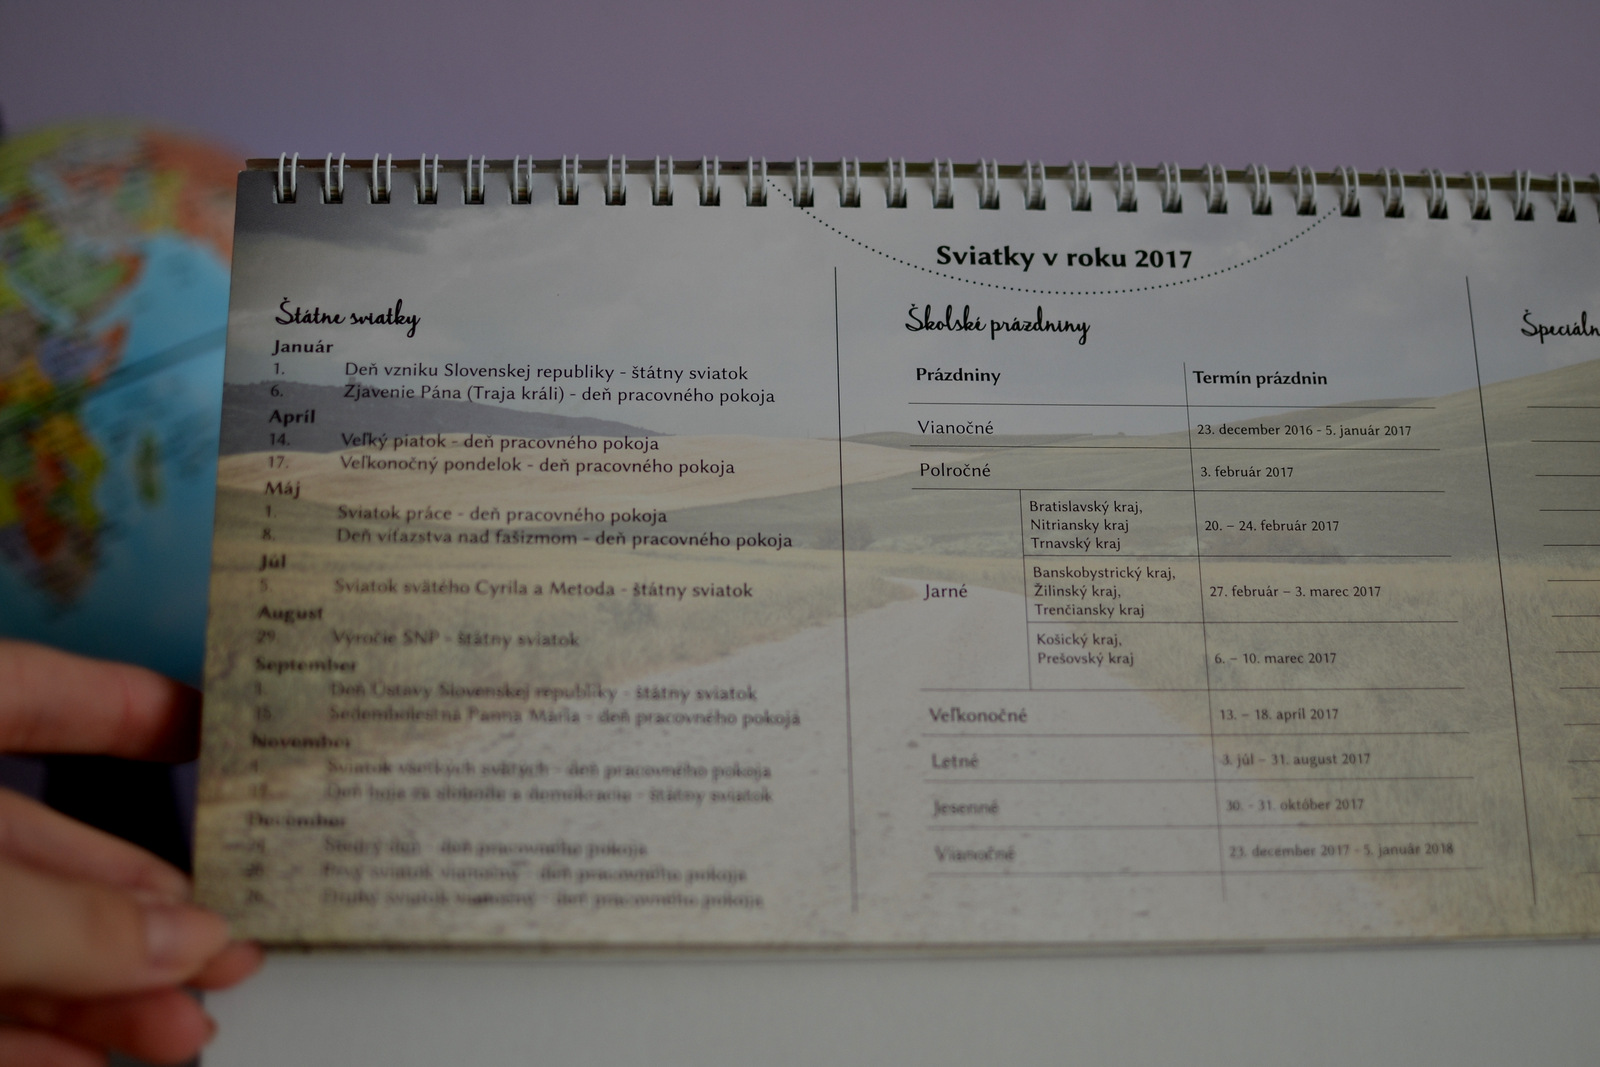 Sviatky v roku 2017
Štátne sviatky
Január
1. Deň vzniku Slovenskej republiky - štátny sviatok
6. Zjavenie Pána (Traja králi) - deň pracovného pokoja
Apríl
14. Veľký piatok - deň pracovného pokoja
17. Veľkonočný pondelok - deň pracovného pokoja
Máj
1. Sviatok práce - deň pracovného pokoja
8. Deň víťazstva nad fašizmom - deň pracovného pokoja
Júl
5. Sviatok svätého Cyrila a Metoda - štátny sviatok
August
29. Výročie SNP - štátny sviatok
September
1. Deň Ústavy Slovenskej republiky - štátny sviatok
15. Sedembolestná Panna Mária - deň pracovného pokoja
November
1. Sviatok všetkých svätých - deň pracovného pokoja
17. Deň boja za slobodu a demokraciu - štátny sviatok
December
24. Štedrý deň - deň pracovného pokoja
25. Prvý sviatok vianočný - deň pracovného pokoja
26. Druhý sviatok vianočný - deň pracovného pokoja
Školské prázdniny
Prázdniny Termín prázdnin
Vianočné 23. december 2016 - 5. január 2017
Polročné 3. február 2017
Jarné
Bratislavský kraj,
Nitriansky kraj 20. – 24. február 2017
Trnavský kraj
Banskobystrický kraj,
Žilinský kraj, 27. február – 3. marec 2017
Trenčiansky kraj
Košický kraj,
Prešovský kraj 6. – 10. marec 2017
Veľkonočné 13. – 18. apríl 2017
Letné 3. júl – 31. august 2017
Jesenné 30. - 31. október 2017
Vianočné 23. december 2017 - 5. január 2018
Špeciáln